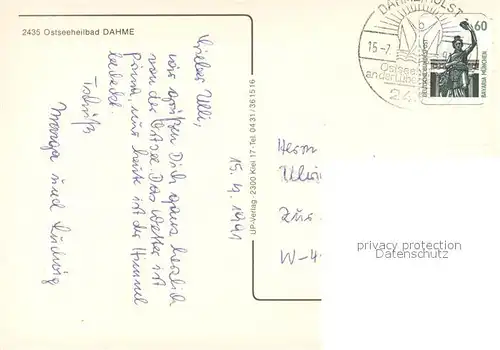 2435 Ostseeheilbad DAHME
Lieber Ulli,
wir grüßen Dich ganz herzlich
von der Ostsee. Das Wetter ist
prima, nur heute ist der Himmel
bedeckt.
Tschüß
und Ludwig
15. 1991
UP-Verlag · 2300 Kiel 17 · Tel. 04 31 / 36 15 16
Herrn
W-4
DAHME/HOLST
15.-7.
Ostsee
24
60
DEUTSCHE BUNDESPOST
BAVARIA MÜNCHEN
privacy protection
Datenschutz